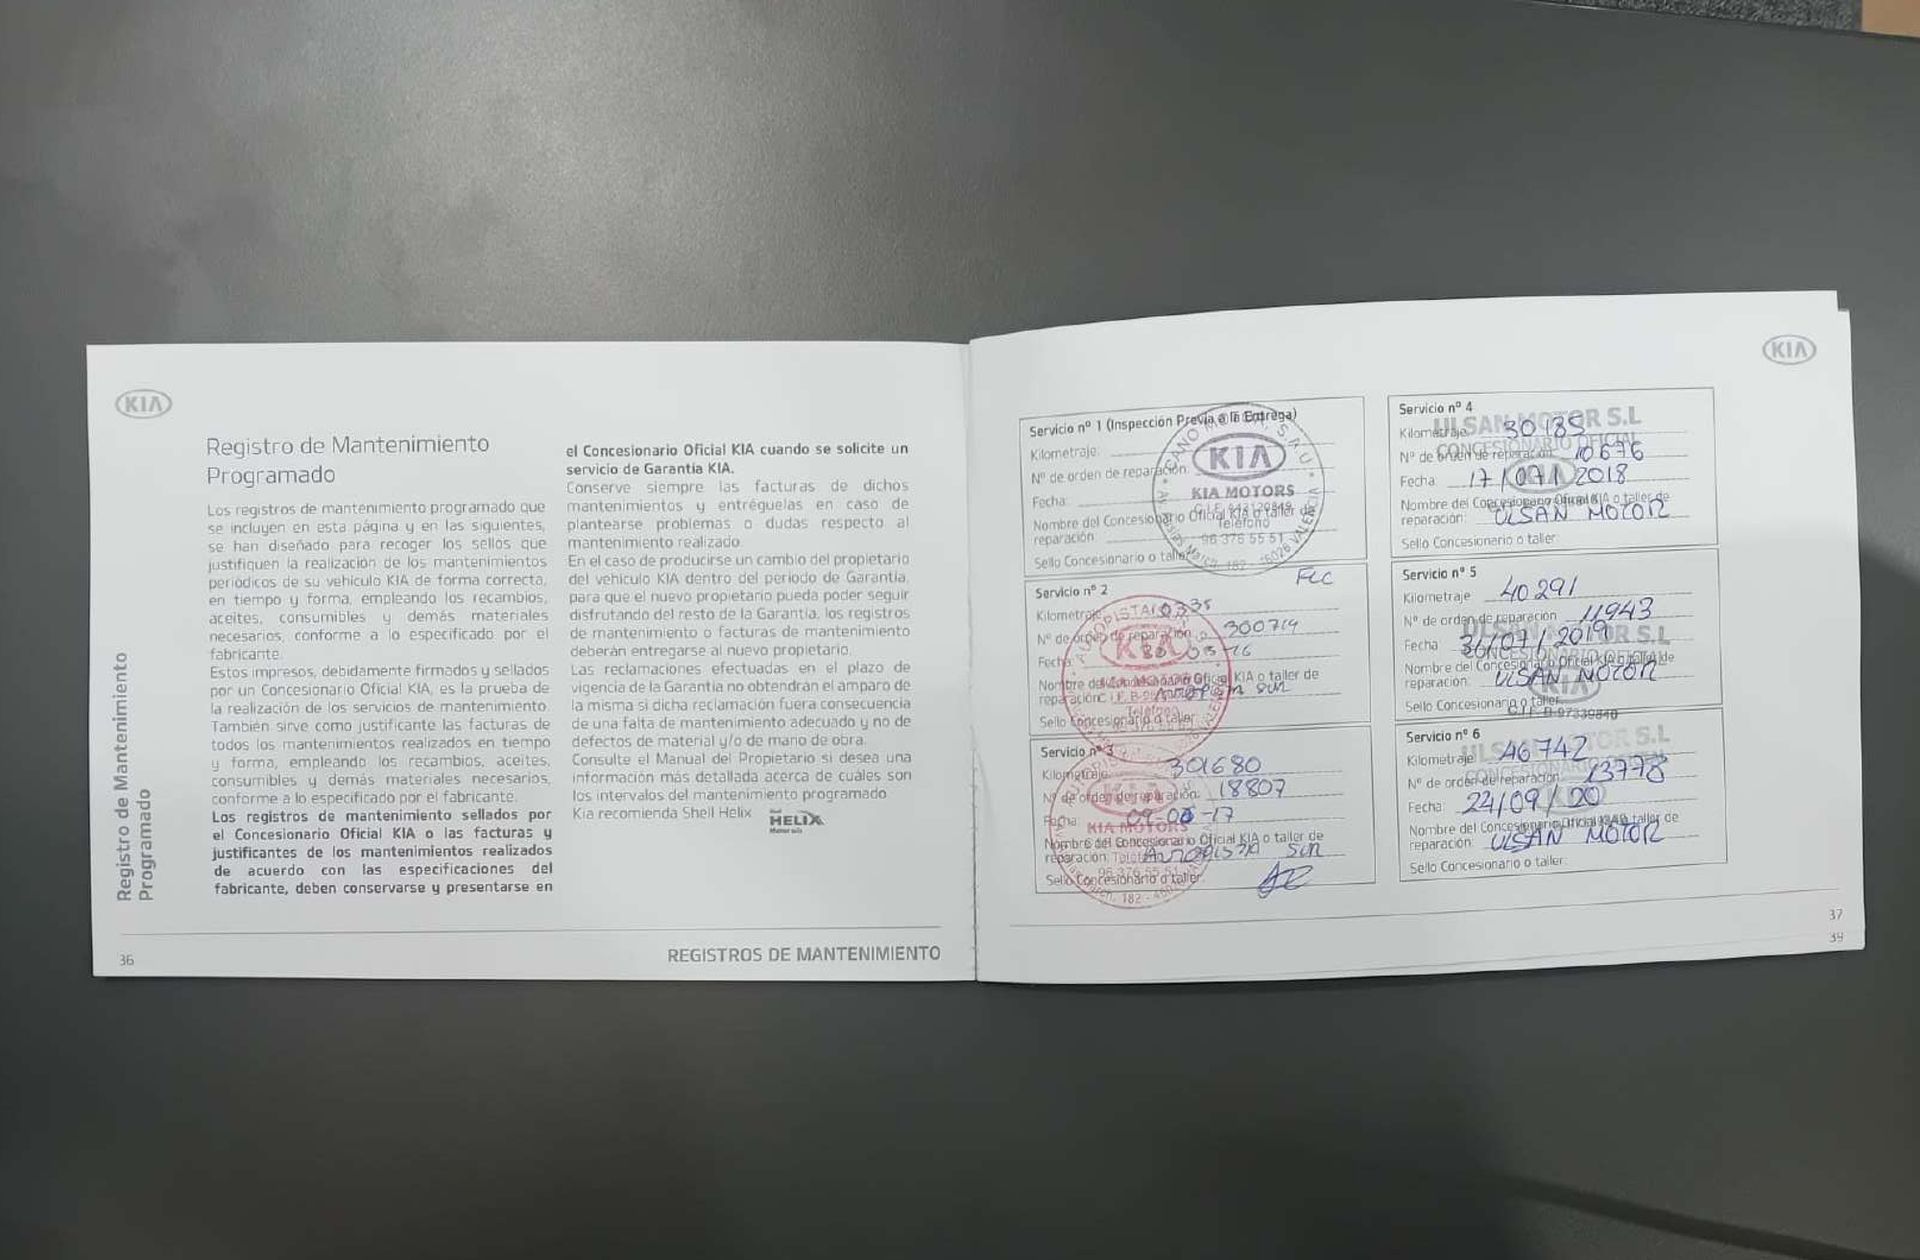 KIA
Registro de Mantenimiento
Programado
Registro de Mantenimiento
Programado
Los registros de mantenimiento programado que
se incluyen en esta página y en las siguientes,
se han diseñado para recoger los sellos que
justifiquen la realización de los mantenimientos
periódicos de su vehículo KIA de forma correcta,
en tiempo y forma, empleando los recambios,
aceites, consumibles y demás materiales
necesarios, conforme a lo especificado por el
fabricante.
Estos impresos, debidamente firmados y sellados
por un Concesionario Oficial KIA, es la prueba de
la realización de los servicios de mantenimiento.
También sirve como justificante las facturas de
todos los mantenimientos realizados en tiempo
y forma, empleando los recambios, aceites,
consumibles y demás materiales necesarios,
conforme a lo especificado por el fabricante.
Los registros de mantenimiento sellados por
el Concesionario Oficial KIA o las facturas y
justificantes de los mantenimientos realizados
de acuerdo con las especificaciones del
fabricante, deben conservarse y presentarse en
el Concesionario Oficial KIA cuando se solicite un
servicio de Garantía KIA.
Conserve siempre las facturas de dichos
mantenimientos y entréguelas en caso de
plantearse problemas o dudas respecto al
mantenimiento realizado.
En el caso de producirse un cambio del propietario
del vehículo KIA dentro del periodo de Garantía,
para que el nuevo propietario pueda poder seguir
disfrutando del resto de la Garantía, los registros
de mantenimiento o facturas de mantenimiento
deberán entregarse al nuevo propietario.
Las reclamaciones efectuadas en el plazo de
vigencia de la Garantía no obtendrán el amparo de
la misma si dicha reclamación fuera consecuencia
de una falta de mantenimiento adecuado y no de
defectos de material y/o de mano de obra.
Consulte el Manual del Propietario si desea una
información más detallada acerca de cuáles son
los intervalos del mantenimiento programado.
Kia recomienda Shell Helix
HELIX
36
REGISTROS DE MANTENIMIENTO
KIA
Servicio nº 1 (Inspección Previa a la Entrega)
Kilometraje:
Nº de orden de reparación:
Fecha:
Nombre del Concesionario Oficial KIA o taller de
reparación:
Sello Concesionario o taller:
KIA
KIA MOTORS
Teléfono
96 376 55 51
Servicio nº 2
Kilometraje:
Nº de orden de reparación:
Fecha:
Nombre del Concesionario Oficial KIA o taller de
reparación:
Sello Concesionario o taller:
KIA
Servicio nº 3
Kilometraje: 301680
Nº de orden de reparación: 18807
Fecha: 09-08-17
Nombre del Concesionario Oficial KIA o taller de
reparación: AUTOPISTA SUR
Sello Concesionario o taller:
KIA
KIA MOTORS
Servicio nº 4
Kilometraje: 30185
Nº de orden de reparación: 10676
Fecha: 17/07/2018
Nombre del Concesionario Oficial KIA o taller de
reparación: ULSAN MOTOR
Sello Concesionario o taller:
ULSAN MOTOR S.L
CONCESIONARIO OFICIAL
KIA
Servicio nº 5
Kilometraje: 40291
Nº de orden de reparación: 11943
Fecha: /07/2019
Nombre del Concesionario Oficial KIA o taller de
reparación: ULSAN MOTOR
Sello Concesionario o taller:
ULSAN MOTOR S.L
CONCESIONARIO OFICIAL
KIA
C.I.F. B-97339840
Servicio nº 6
Kilometraje: 46742
Nº de orden de reparación: 13778
Fecha: 22/09/20
Nombre del Concesionario Oficial KIA o taller de
reparación: ULSAN MOTOR
Sello Concesionario o taller:
ULSAN MOTOR S.L
CONCESIONARIO OFICIAL
KIA
37
39